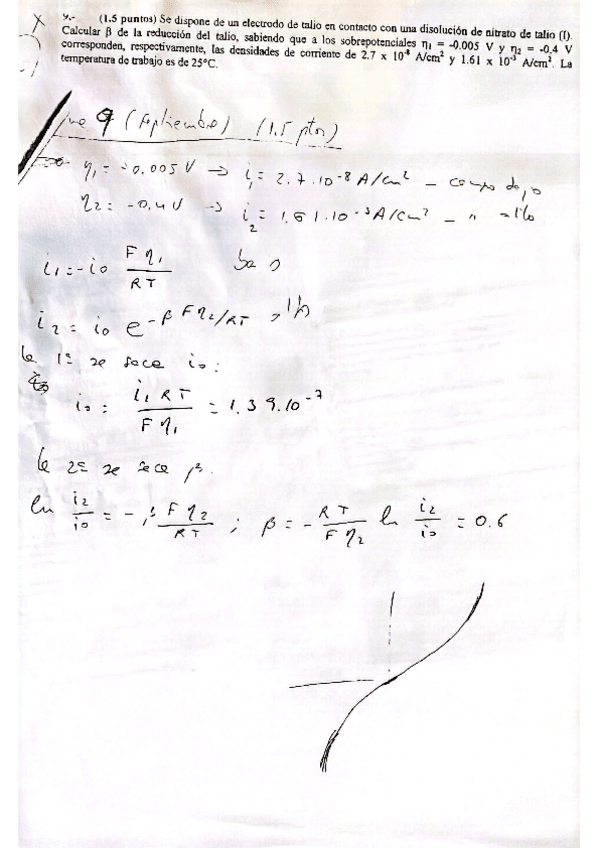 9.- (1.5 puntos) Se dispone de un electrodo de talio en contacto con una disolución de nitrato de talio (I).
Calcular β de la reducción del talio, sabiendo que a los sobrepotenciales η₁ = -0.005 V y η₂ = -0,4 V
corresponden, respectivamente, las densidades de corriente de 2.7 x 10⁻⁸ A/cm² y 1.61 x 10⁻³ A/cm². La
temperatura de trabajo es de 25ºC.
9 (Septiembre) (1.5 ptos)
η₁ = -0.005 V → i₁ = 2.7.10⁻⁸ A/cm² - campo bajo
η₂ = -0.4 V → i₂ = 1.61.10⁻³ A/cm² - " alto
i₁ = -i₀ Fη₁/RT
i₂ = i₀ e^(-β Fη₂/RT)
la 1ª se saca i₀:
i₀ = i₁RT/Fη₁ = 1.39.10⁻⁷
la 2ª se saca β.
ln i₂/i₀ = -β Fη₂/RT ; β = - RT/Fη₂ ln i₂/i₀ = 0.6